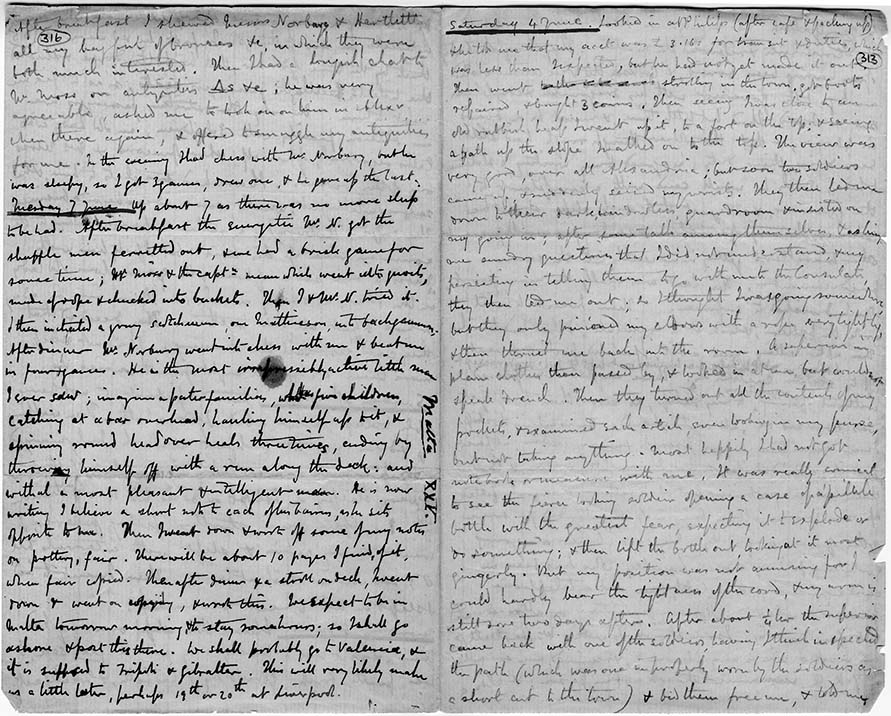 316
After breakfast I shewed Messrs Norbury & Hewlett
all my bag full of bronzes &c, in which they were
both much interested. Then I had a longish chat to
Mr Moss on antiquities Δs &c; he was very
agreeable, asked me to look in on him in Alexr
when there again, & offered to smuggle any antiquities
for me. In the evening I had chess with Mr Norbury, but he
was sleepy, so I got 3 games, drew one, & he gave up the last.
Tuesday 7 June Up about 7 as there was no more sleep
to be had. After breakfast the energetic Mr N. got the
shuffle men ferretted out, & we had a brisk game for
some time; Mr Moss & the captn mean which went into quoits,
made of rope & chucked into buckets. Then I & Mr N. tried it.
I then initiated a young Scotchman, on Mattheson, into backgammon.
After dinner Mr Norbury went into chess with me & beat me
in four games. He is the most irrepressibly active little man
I ever saw; imagine a paterfamilias, with five children,
catching at a bar overhead, hauling himself up to it, &
spinning round head over heels three times, ending by
throwing himself off with a run along the deck: and
withal a most pleasant & intelligent man. He is now
writing I believe a short note to each of his bairns, as he sits
opposite to me. Then I went down & wrote off some of my notes
on pottery, fair. There will be about 10 pages I find, of it,
when fair copied. Then after dinner & a stroll on deck, I went
down & went on copying, & wrote this. We expect to be in
Malta tomorrow morning & to stay some hours; so I shall go
ashore & post this there. We shall probably go to Valencia, &
it is supposed to Tripoli & Gibralter. This will very likely make
us a little later, perhaps 19th or 20th at Liverpool.
Malta XXV.
Saturday 4 June. Looked in at Philips (after cafe & packing up)
313
& he told me that my acct was £ 3.16s for transit & duties, which
was less than I expected, but he had not yet made it out.
Then went strolling in the town, got boots
repaired & bought 3 coins. Then seeing I was close to an
old rubbish heap I went up it, to a fort on the top; & seeing
a path up the slope I walked on to the top. The view was
very good, over all Alexandria; but soon two soldiers
came up & suddenly seized my wrists. They then led me
down to their dark windowless guardroom & insisted on
my going in; after some talk among themselves, & asking
me sundry questions that I did not understand, & my
persisting in telling them to go with me to the Consulate,
they then led me out; so I thought I was going somewhere
but they only pinioned my elbows with a rope, very tightly,
& then thrust me back into the room. A superior in
plain clothes then passed by, & looked in at me, but could not
speak French. Then they turned out all the contents of my
pockets, & examined each article even looking in my purse,
but not taking anything. Most happily I had not got
notebook or measure with me. It was really comical
to see the fierce looking soldier opening a case of a pilule
bottle with the greatest fear, expecting it to explode or
do something; & then lift the bottle out looking at it most
gingerly. But my position was not amusing for I
could hardly bear the tightness of the cord, & my arm is
still sore two days after. After about ¼ hr the superior
came back with one of the soldiers, having I think inspected
the path (which was one improperly worn by the soldiers as
a short cut to the town) & bid them free me, & told me